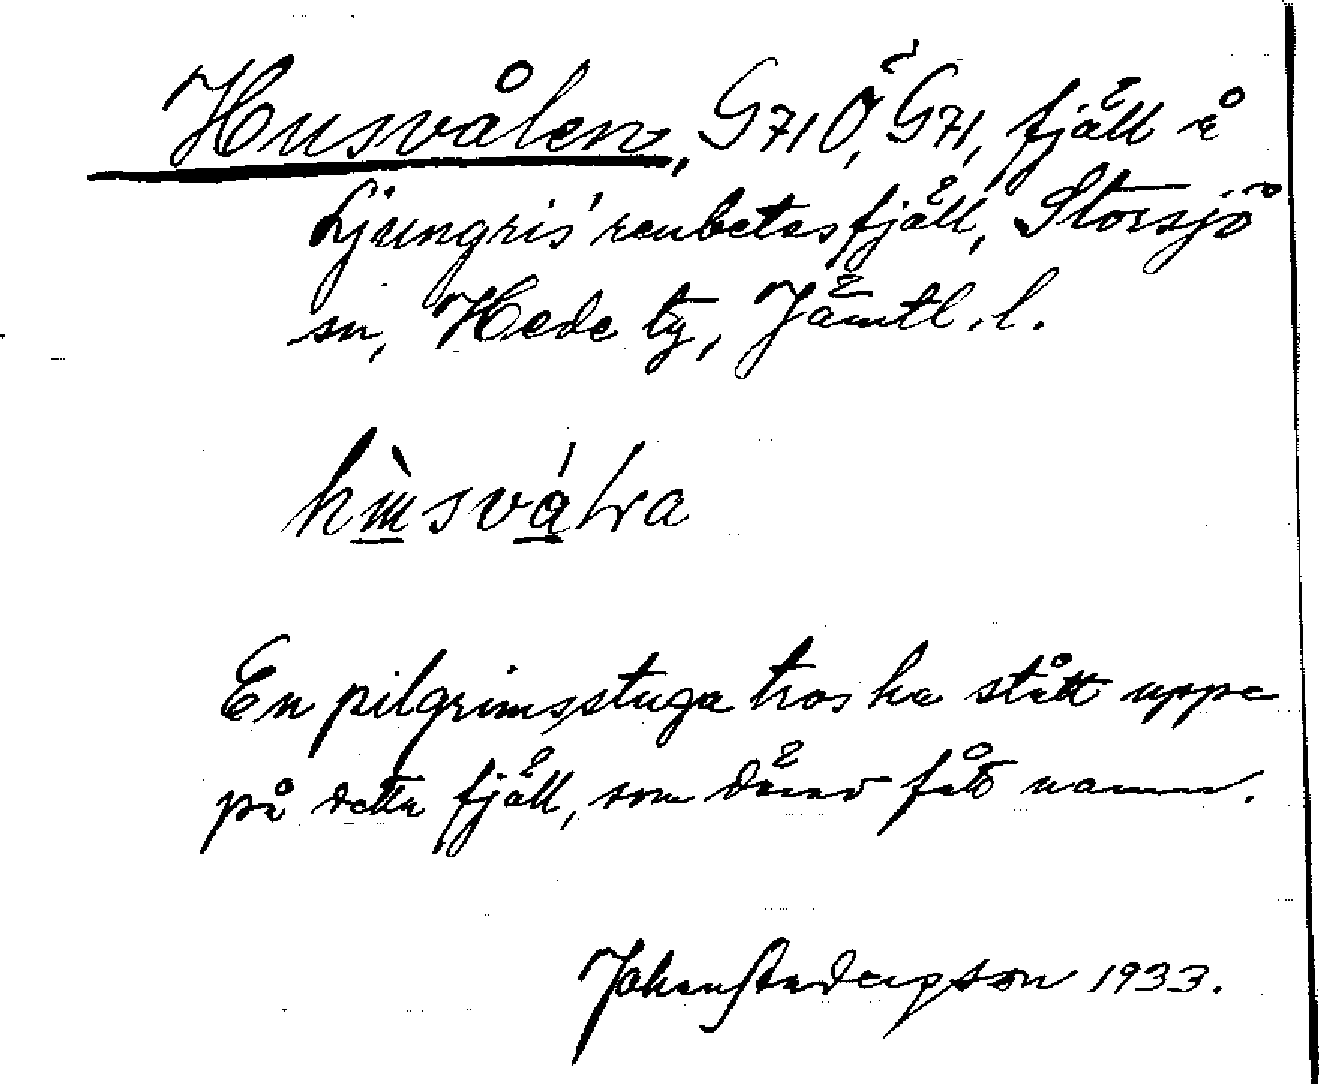 Husvålen, G71Ö, G71, fjäll å
Ljungris' renbetesfjäll, Storsjö
sn, Hede tg, Jämtl. l.
En pilgrimsstuga tros ha stått uppe
på detta fjäll, som därav fått namn.
1933.